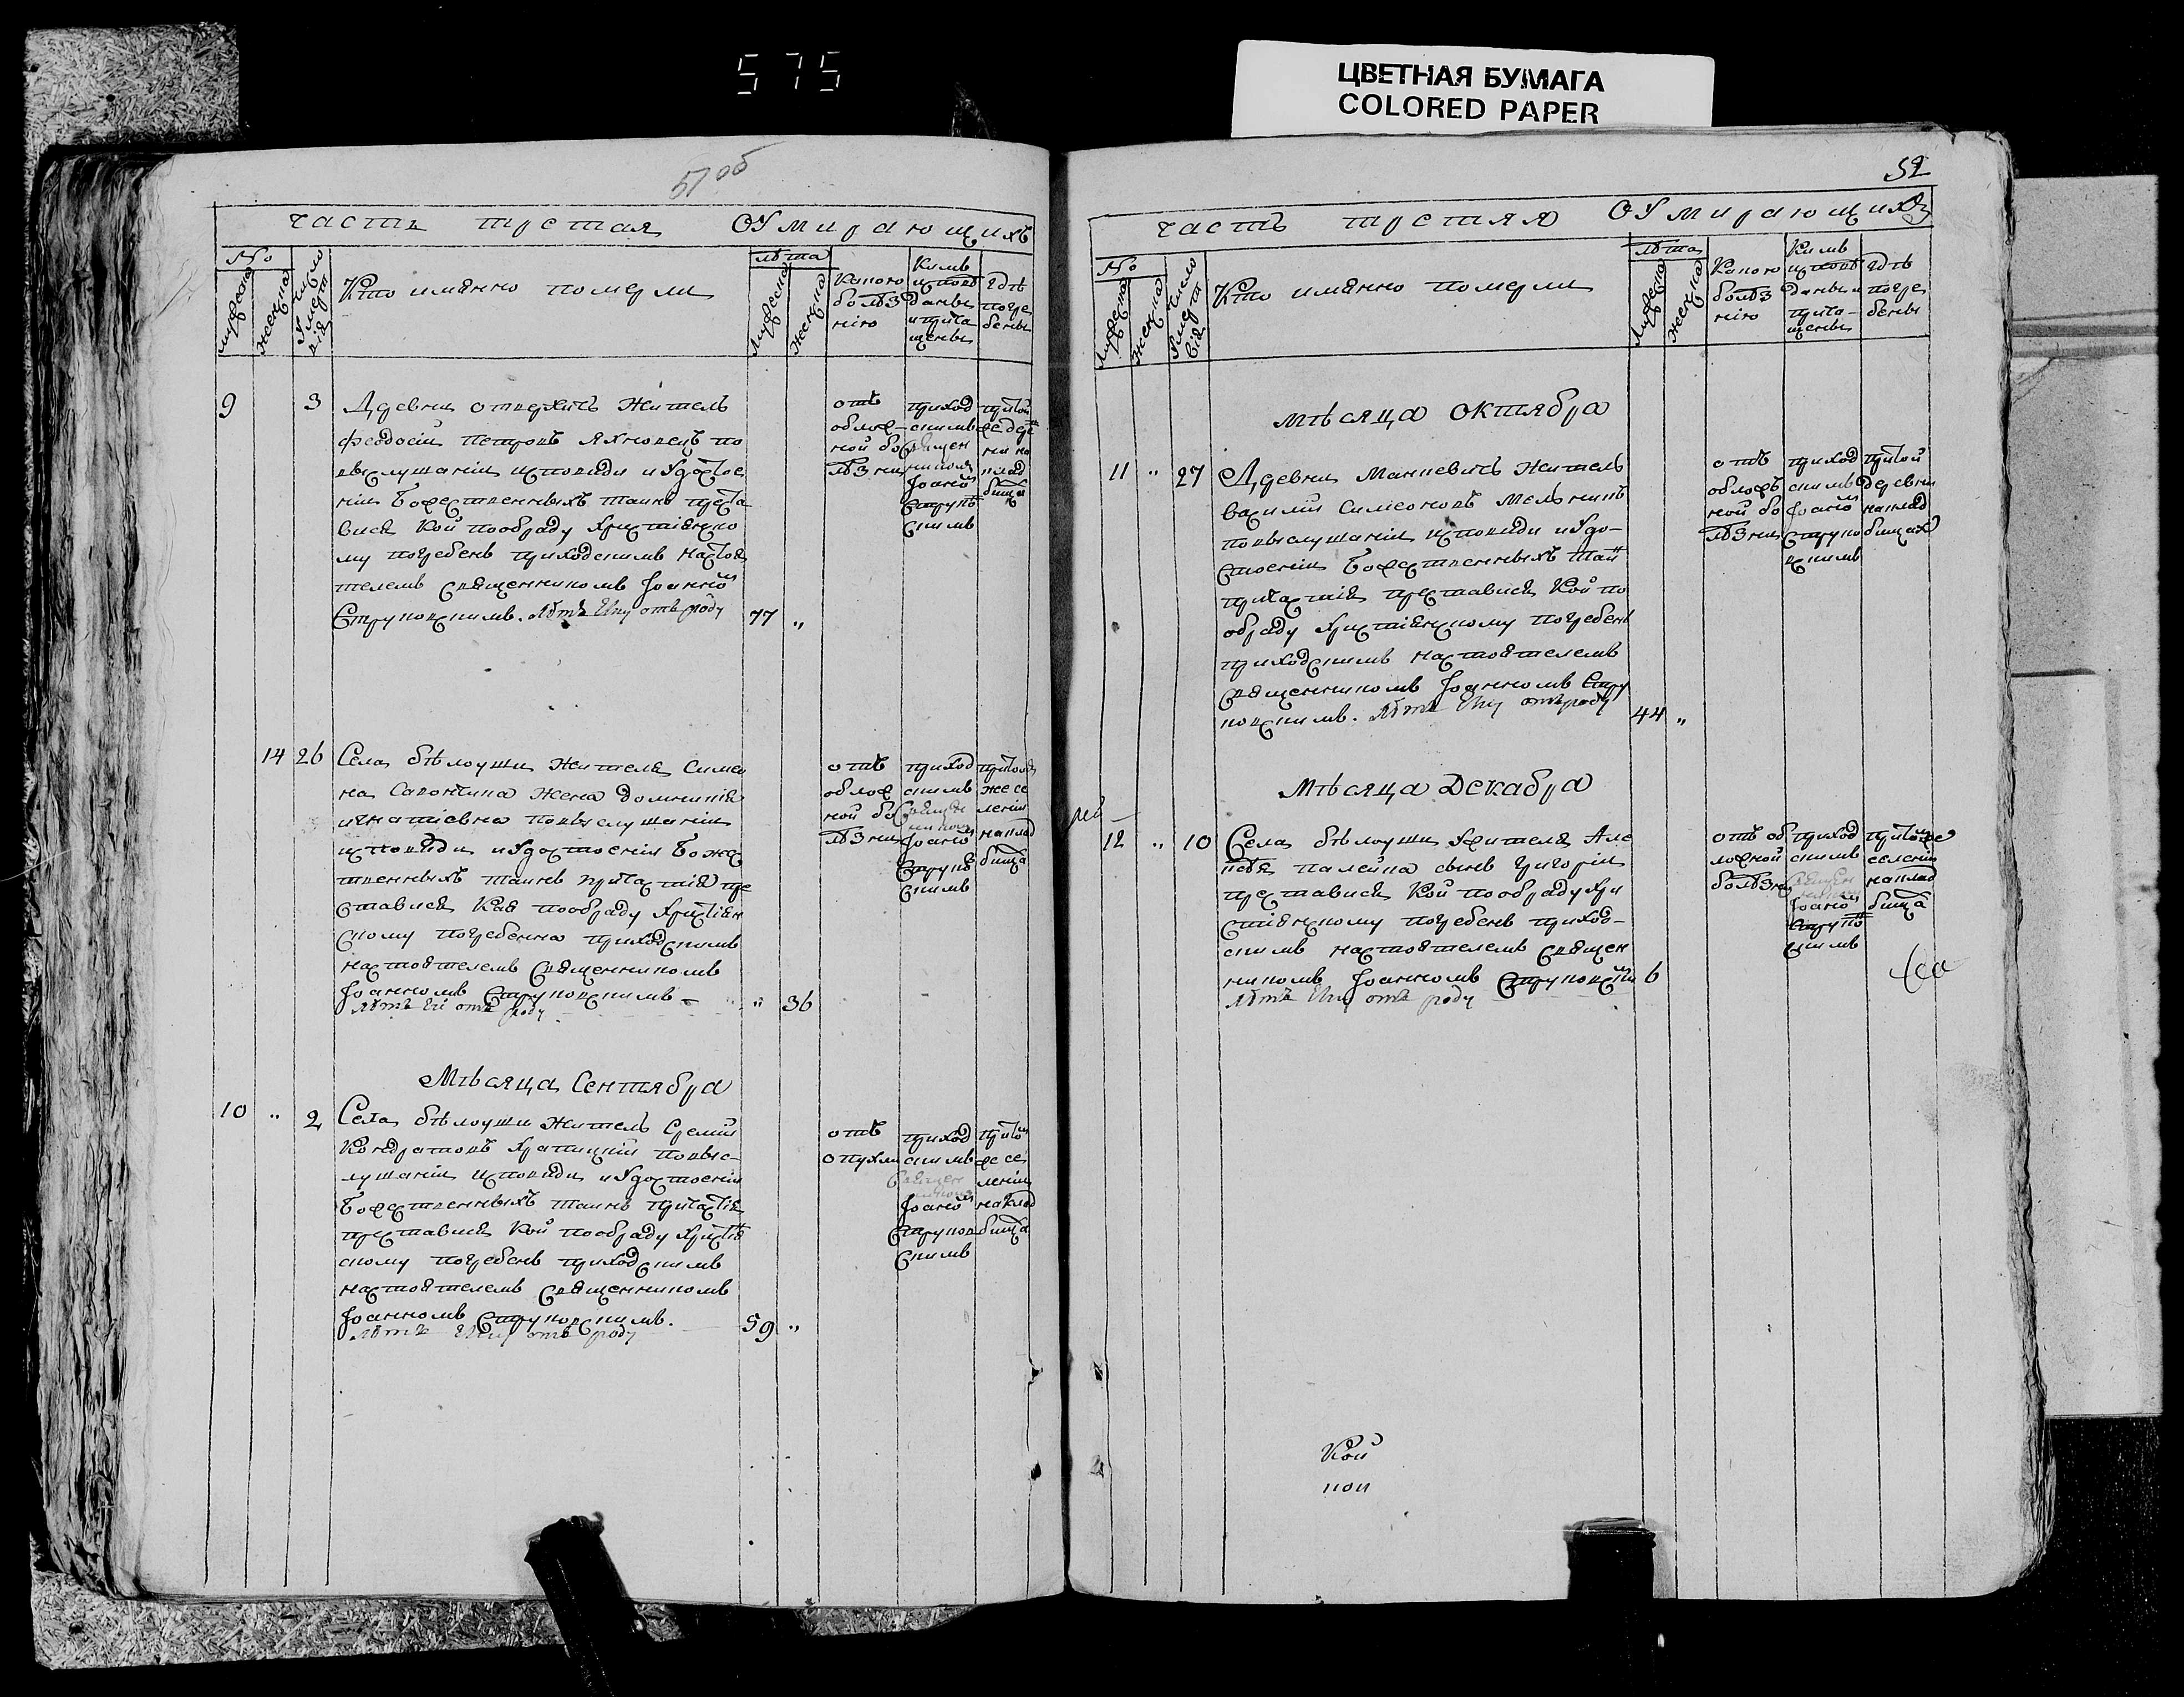 575
ЦВЕТНАЯ БУМАГА
COLORED PAPER
51 об
часть третая О Умирающихъ
№
мужеска
женска
Число Умертвія
Кто имянно померли
лѣта
Мужеска
женска
Какою болѣзнію
Кимъ исповѣданы и прича щены
гдѣ погребены
9 3 Деревни отвержичь Житель
Феодосій Петровъ Яхновецъ по
выслушаніи исповѣди и Удостое
ніи Божественныхъ таинъ преста
вися Кой пообряду Христіянско
му погребенъ приходскимъ настоя
телемъ Священникомъ Іоанномъ
Струковскимъ. Лѣтъ Ему отъ роду 77 „
отъ
облож-
ной бо
лѣзни
приход
скимъ
Священ
никомъ
Іоаном
Струков
скимъ
при той
же дерев
ни на
клад
бища
14 26 Села бѣлоуши Жителя Симео
на жена Домникія
игнатіевна повыслушаніи
исповѣди и Удостоеніи Божес
твенныхъ таинъ причастія пре
ставися Кая пообряду Христіян
скому погребенна приходскимъ
настоятелемъ Священникомъ
Іоанномъ Струковскимъ -
Лѣтъ Ей отъ роду „ 36
отъ
облож
ной бо
лѣзни
приход
скимъ
Священ
никомъ
Іоаном
Струков
скимъ
при том
же се
леніи
на клад
бища
Мѣсяца Сентября
10 „ 2 Села бѣлоуши Житель Еремій
Кондратовъ повыс-
лушаніи исповѣди и Удостоеніи
Божественныхъ таинъ причастія
преставися Кой пообряду Христіян
скому погребенъ приходскимъ
настоятелемъ Священникомъ
Іоанномъ Струковскимъ.
Лѣтъ Ему отъ роду 59 „
отъ
опухли
приход
скимъ
Священ
никомъ
Іоаном
Струков
скимъ
при том
же се
леніи
на клад
бища
52
часть третяя О Умирающихъ
№
мужеска
женска
Число Умертвія
Кто имянно померли
лѣта
Мужеска
женска
Какою болѣзнію
Кимъ исповѣданы и прича- щены
гдѣ погребены
мѣсяца октября
11 „ 27 Деревни Манкевичь Житель
василій Симеоновъ Мельникъ
повыслушаніи исповѣди и Удо-
стоеніи Божественныхъ Таин
причастія преставися Кой по
обряду Христіянскому погребенъ
приходскимъ настоятелемъ
Священникомъ Іоанномъ Стру
ковскимъ. Лѣтъ Ему отъ роду 44 „
отъ
обложъ
ной бо
лѣзни
приход
скимъ
Іоаном
Струко
вскимъ
при той
деревни
на клад
бищах
Мѣсяца Декабря
12 „ 10 Села бѣлоуши Жителя Але
палейка сынъ григорій
преставися Кой пообряду Хри
стіянскому погребенъ приход-
скимъ настоятелемъ Священ
никомъ Іоанномъ Струковским 6
Лѣтъ Ему отъ роду
отъ об
ложной
болѣзни
приход
скимъ
Священ
никомъ
Іоаном
Струков
скимъ
при том же
селеніи
на клад
бища
Кой